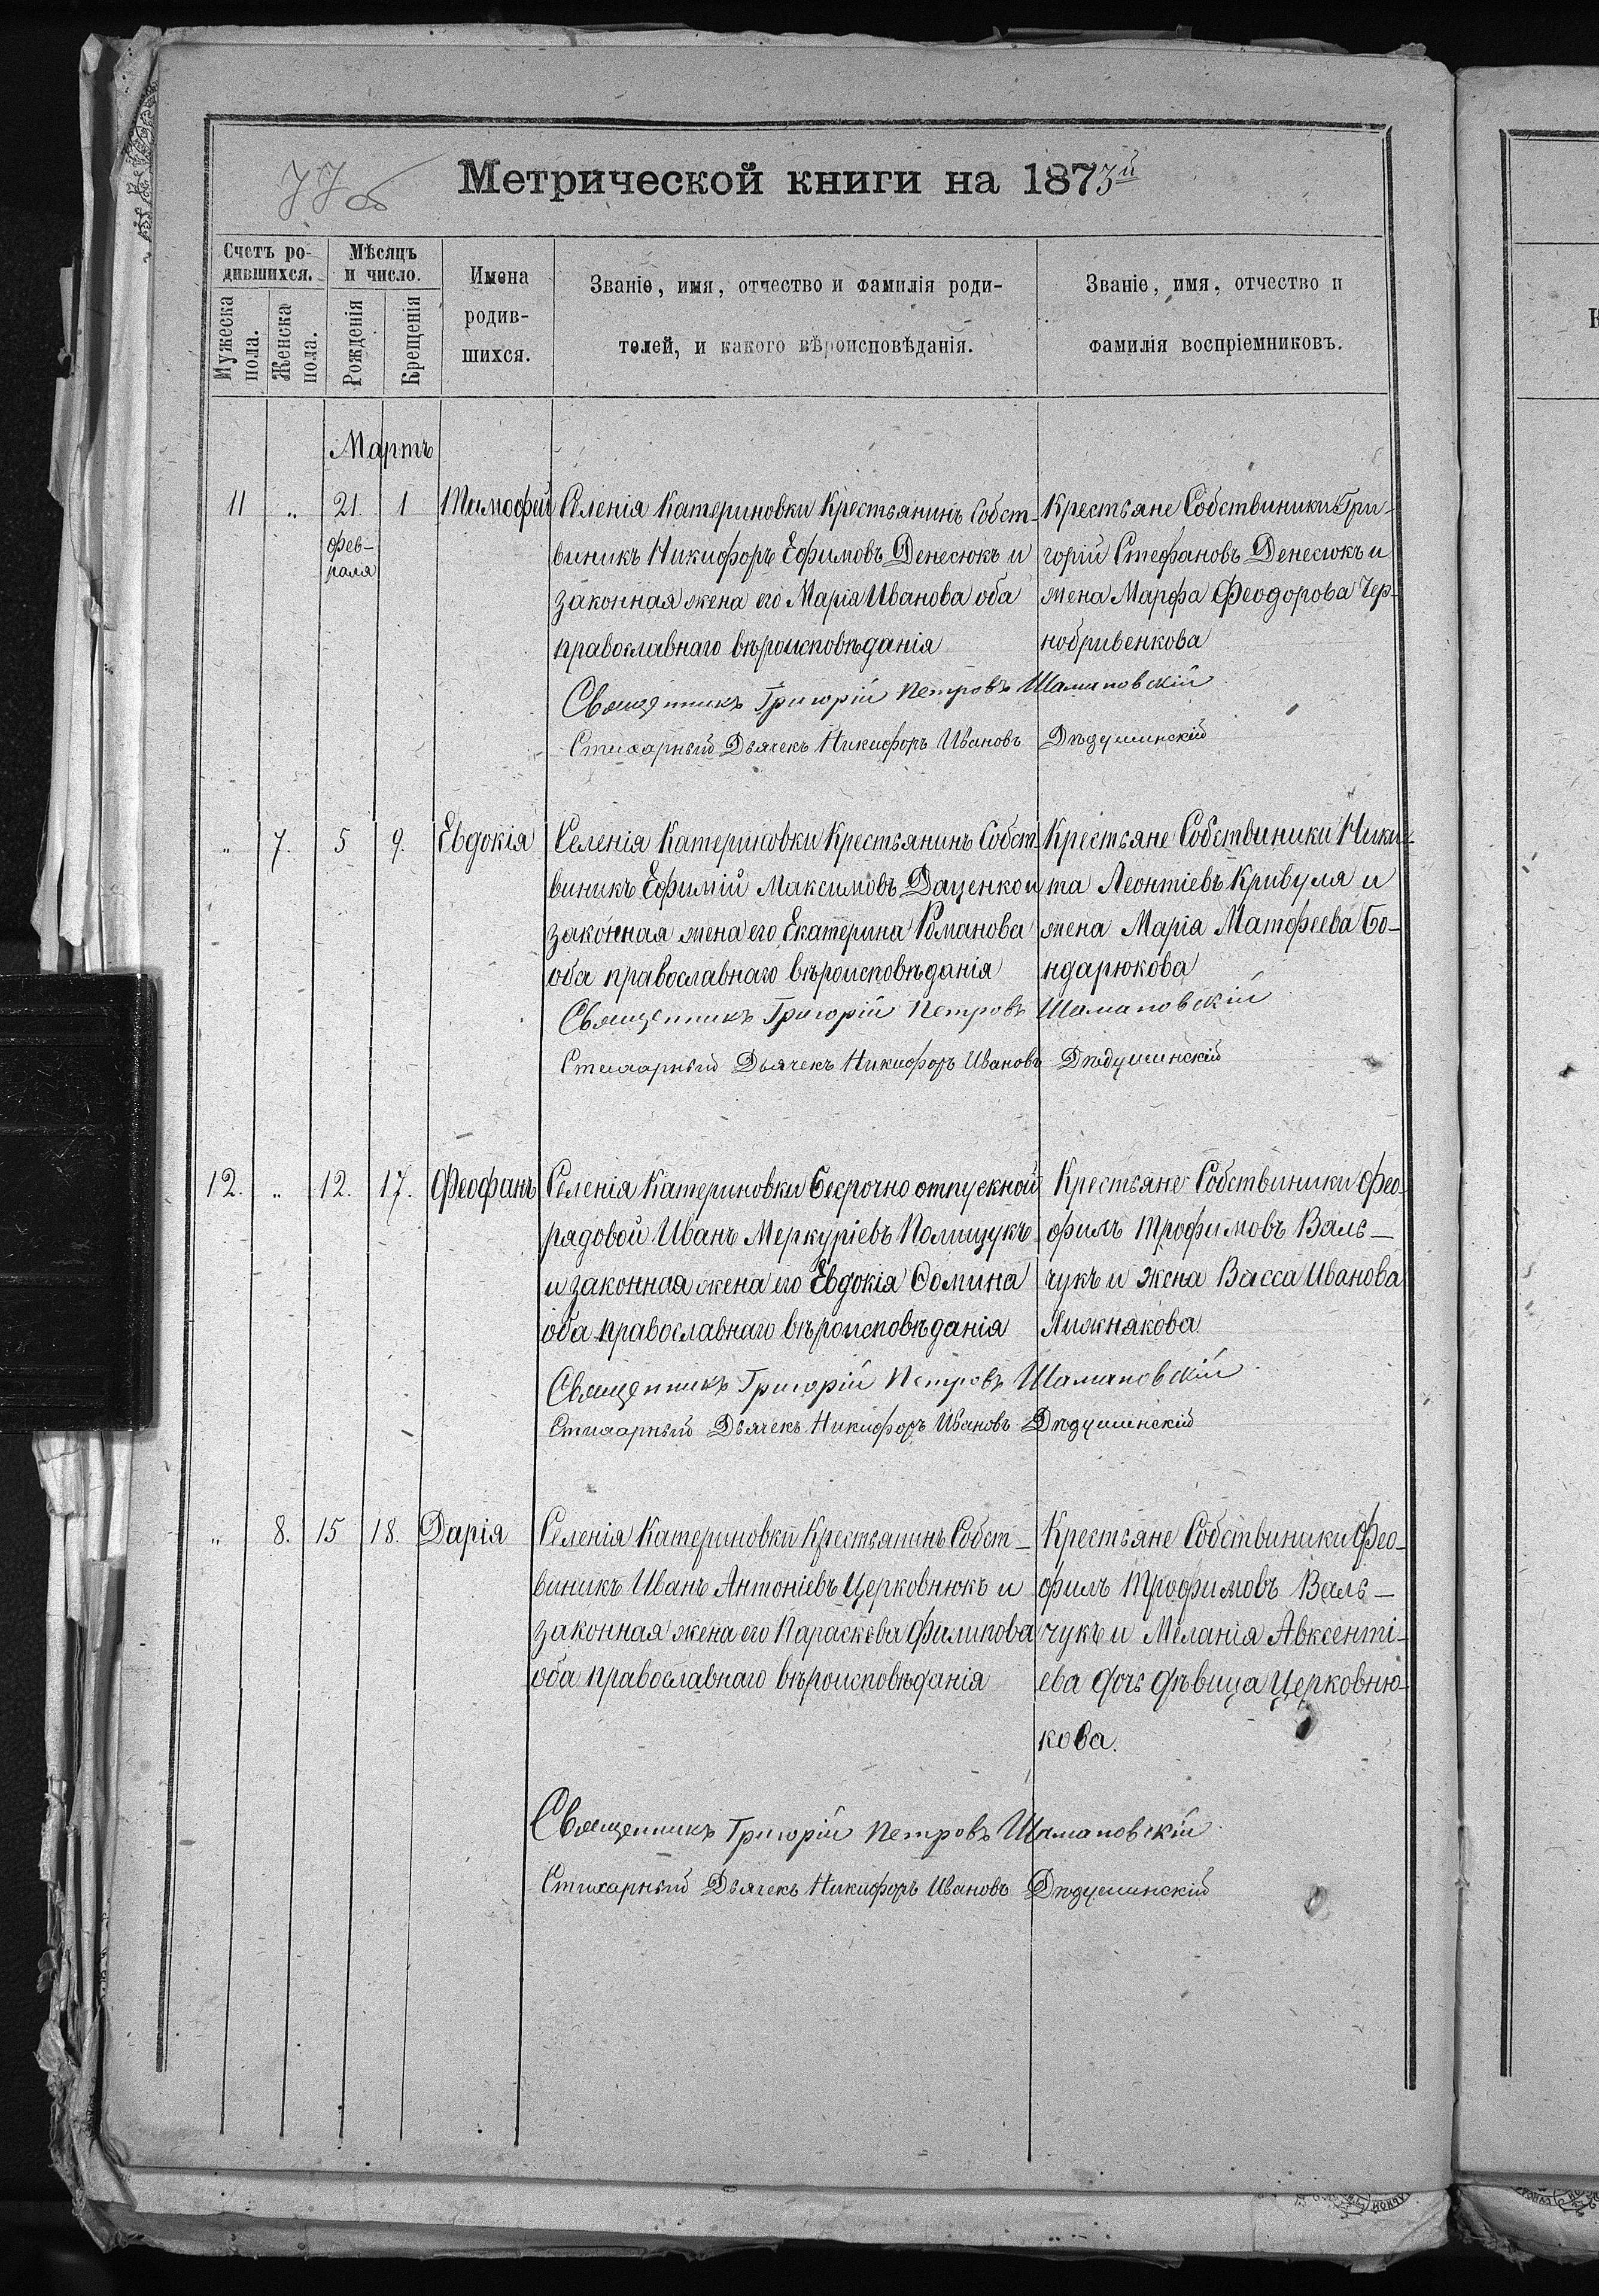 77об
Метрической книги на 1873й
Счетъ ро-
дившихся.
Мужеска
пола.
Женска
пола.
Мѣсяцъ
и число.
Рожденія
Крещенія
Имена
родив-
шихся.
Званіе, имя, отчество и фамилія роди-
телей, и какого вѣроисповѣданія.
Званіе, имя, отчество и
фамилія воспріемниковъ.
Мартъ
11 „ 21 1 Тимофей
фев-
раля
Селенія Катериновки Крестьянинъ Собст-
виникъ Никифоръ Ефимовъ Денесюкъ и
законная жена его Марія Иванова оба
православнаго вѣроисповѣданія
Крестьяне Собствиники Гри-
горій Стефановъ Денесюкъ и
жена Марфа Феодорова Чер-
нобривенкова
Священникъ Григорій Петровъ Шамановскій
Стихарный Дьячекъ Никифоръ Ивановъ Дѣдушинскій
„ 7. 5 9. Евдокія
Селенія Катериновки Крестьянинъ Собст-
виникъ Ефимій Максимовъ Даценко и
законная жена его Екатерина Романова
оба православнаго вѣроисповѣданія
Крестьяне Собствиники Ники-
та Леонтіевъ Кривуля и
жена Марія Матфеева Бо-
ндарюкова
Священникъ Григорій Петровъ Шамановскій
Стихарный Дьячекъ Никифоръ Ивановъ Дѣдушинскій
12. „ 12. 17. Феофанъ
Селенія Катериновки бесрочно отпускной
рядовой Иванъ Меркуріевъ Полищукъ
и законная жена его Евдокія Фомина
оба православнаго вѣроисповѣданія
Крестьяне Собствиники Фео-
филъ Трофимовъ Валь-
чукъ и жена Васса Иванова
Лижнякова
Священникъ Григорій Петровъ Шамановскій
Стихарный Дьячекъ Никифоръ Ивановъ Дѣдушинскій
„ 8. 15 18. Дарія
Селенія Катериновки Крестьянинъ Собст-
виникъ Иванъ Антоніевъ Церковнюкъ и
законная жена его Параскева Филипова
оба православнаго вѣроисповѣданія
Крестьяне Собствиники Фео-
филъ Трофимовъ Валь-
чукъ и Меланія Авксенті-
ева дочь дѣвица Церковню-
кова.
Священникъ Григорій Петровъ Шамановскій
Стихарный Дьячекъ Никифоръ Ивановъ Дѣдушинскій